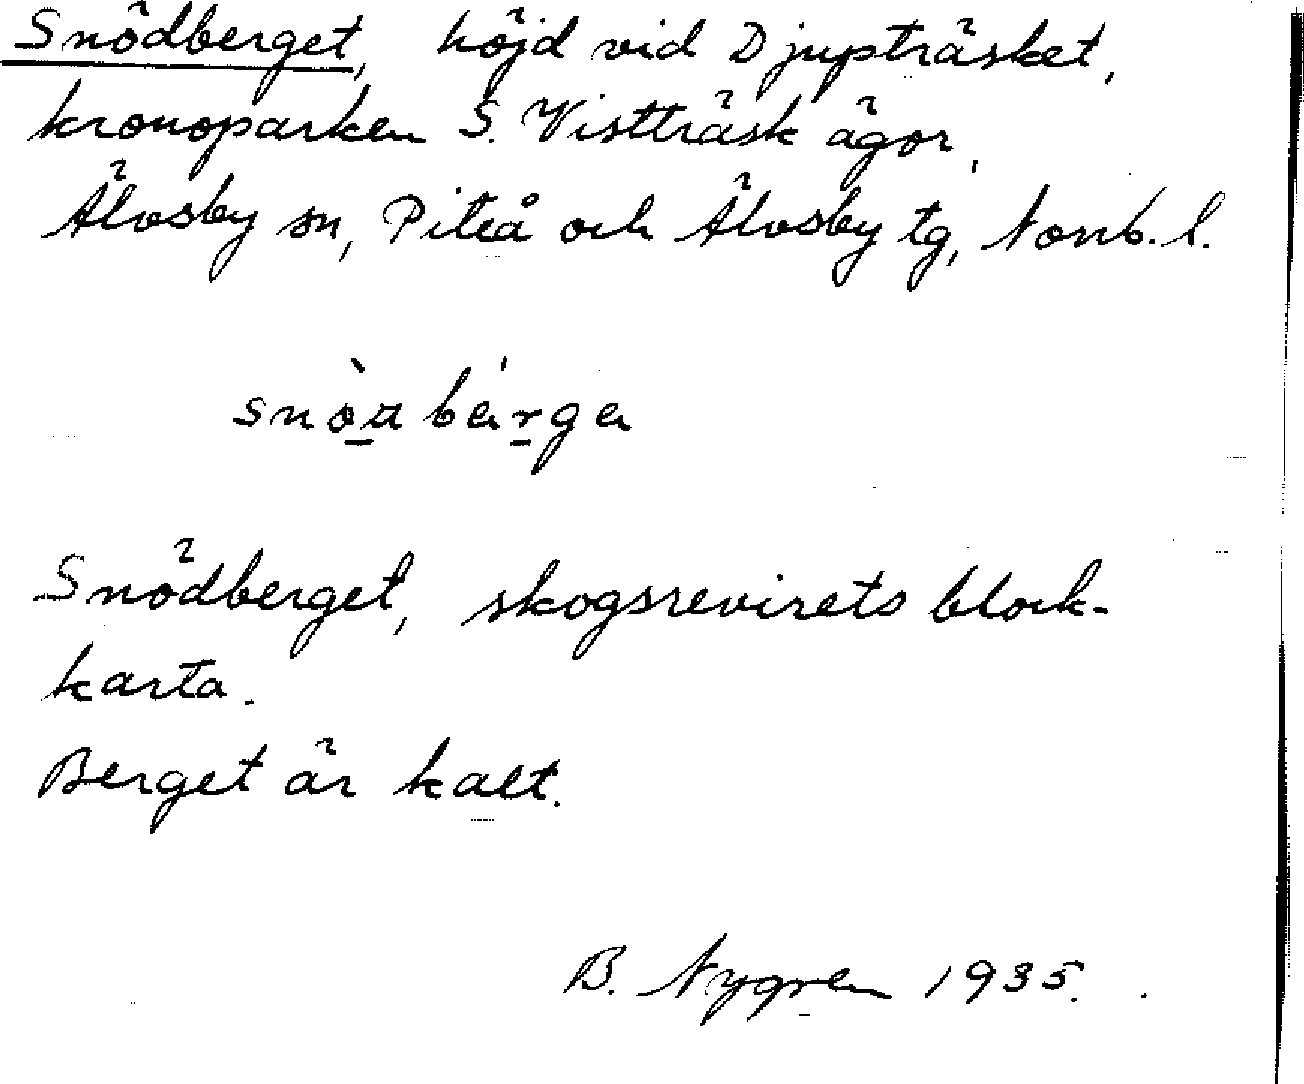 Snödberget, höjd vid Djupträsket,
kronoparken S. Vistträsk ägor,
Älvsby sn, Piteå och Älvsby tg, Norrb. l.
Snödberget, skogsrevirets block-
karta.
Berget är kalt.
B. Nygren 1935.